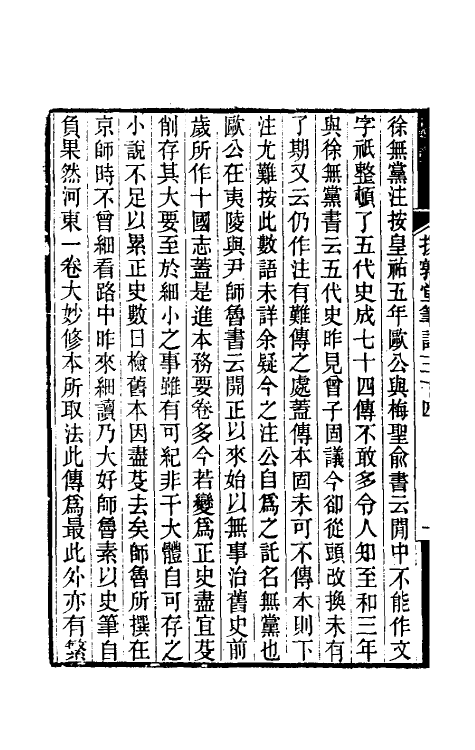 徐無黨注按皇祐五年歐公與梅聖俞書云閒中不能作文
字祇整頓了五代史成七十四傳不敢多令人知至和三年
與徐無黨書云五代史昨見曾子固議今卻從頭改換未有
了期又云仍作注有難傳之處蓋傳本固未可不傳本則下
注尤難按此數語未詳余疑今之注公自為之託名無黨也
歐公在夷陵與尹師魯書云開正以來始以無事治舊史前
歲所作十國志蓋是進本務要卷多今若變為正史盡宜芟
削存其大要至於細小之事雖有可紀非干大體自可存之
小說不足以累正史數日檢舊本因盡芟去矣師魯所撰在
京師時不曾細看路中昨來細讀乃大好師魯素以史筆自
負果然河東一卷大妙修本所取法此傳為最此外亦有繁
援鶉堂筆記三十四
一